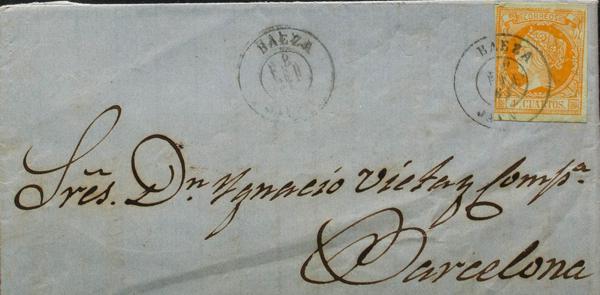 BAEZA
JAEN
CORREOS
BAEZA
JAEN
4 CUARTOS.
Sres. Dn. Ygnacio Vieta y Compa.
Barcelona